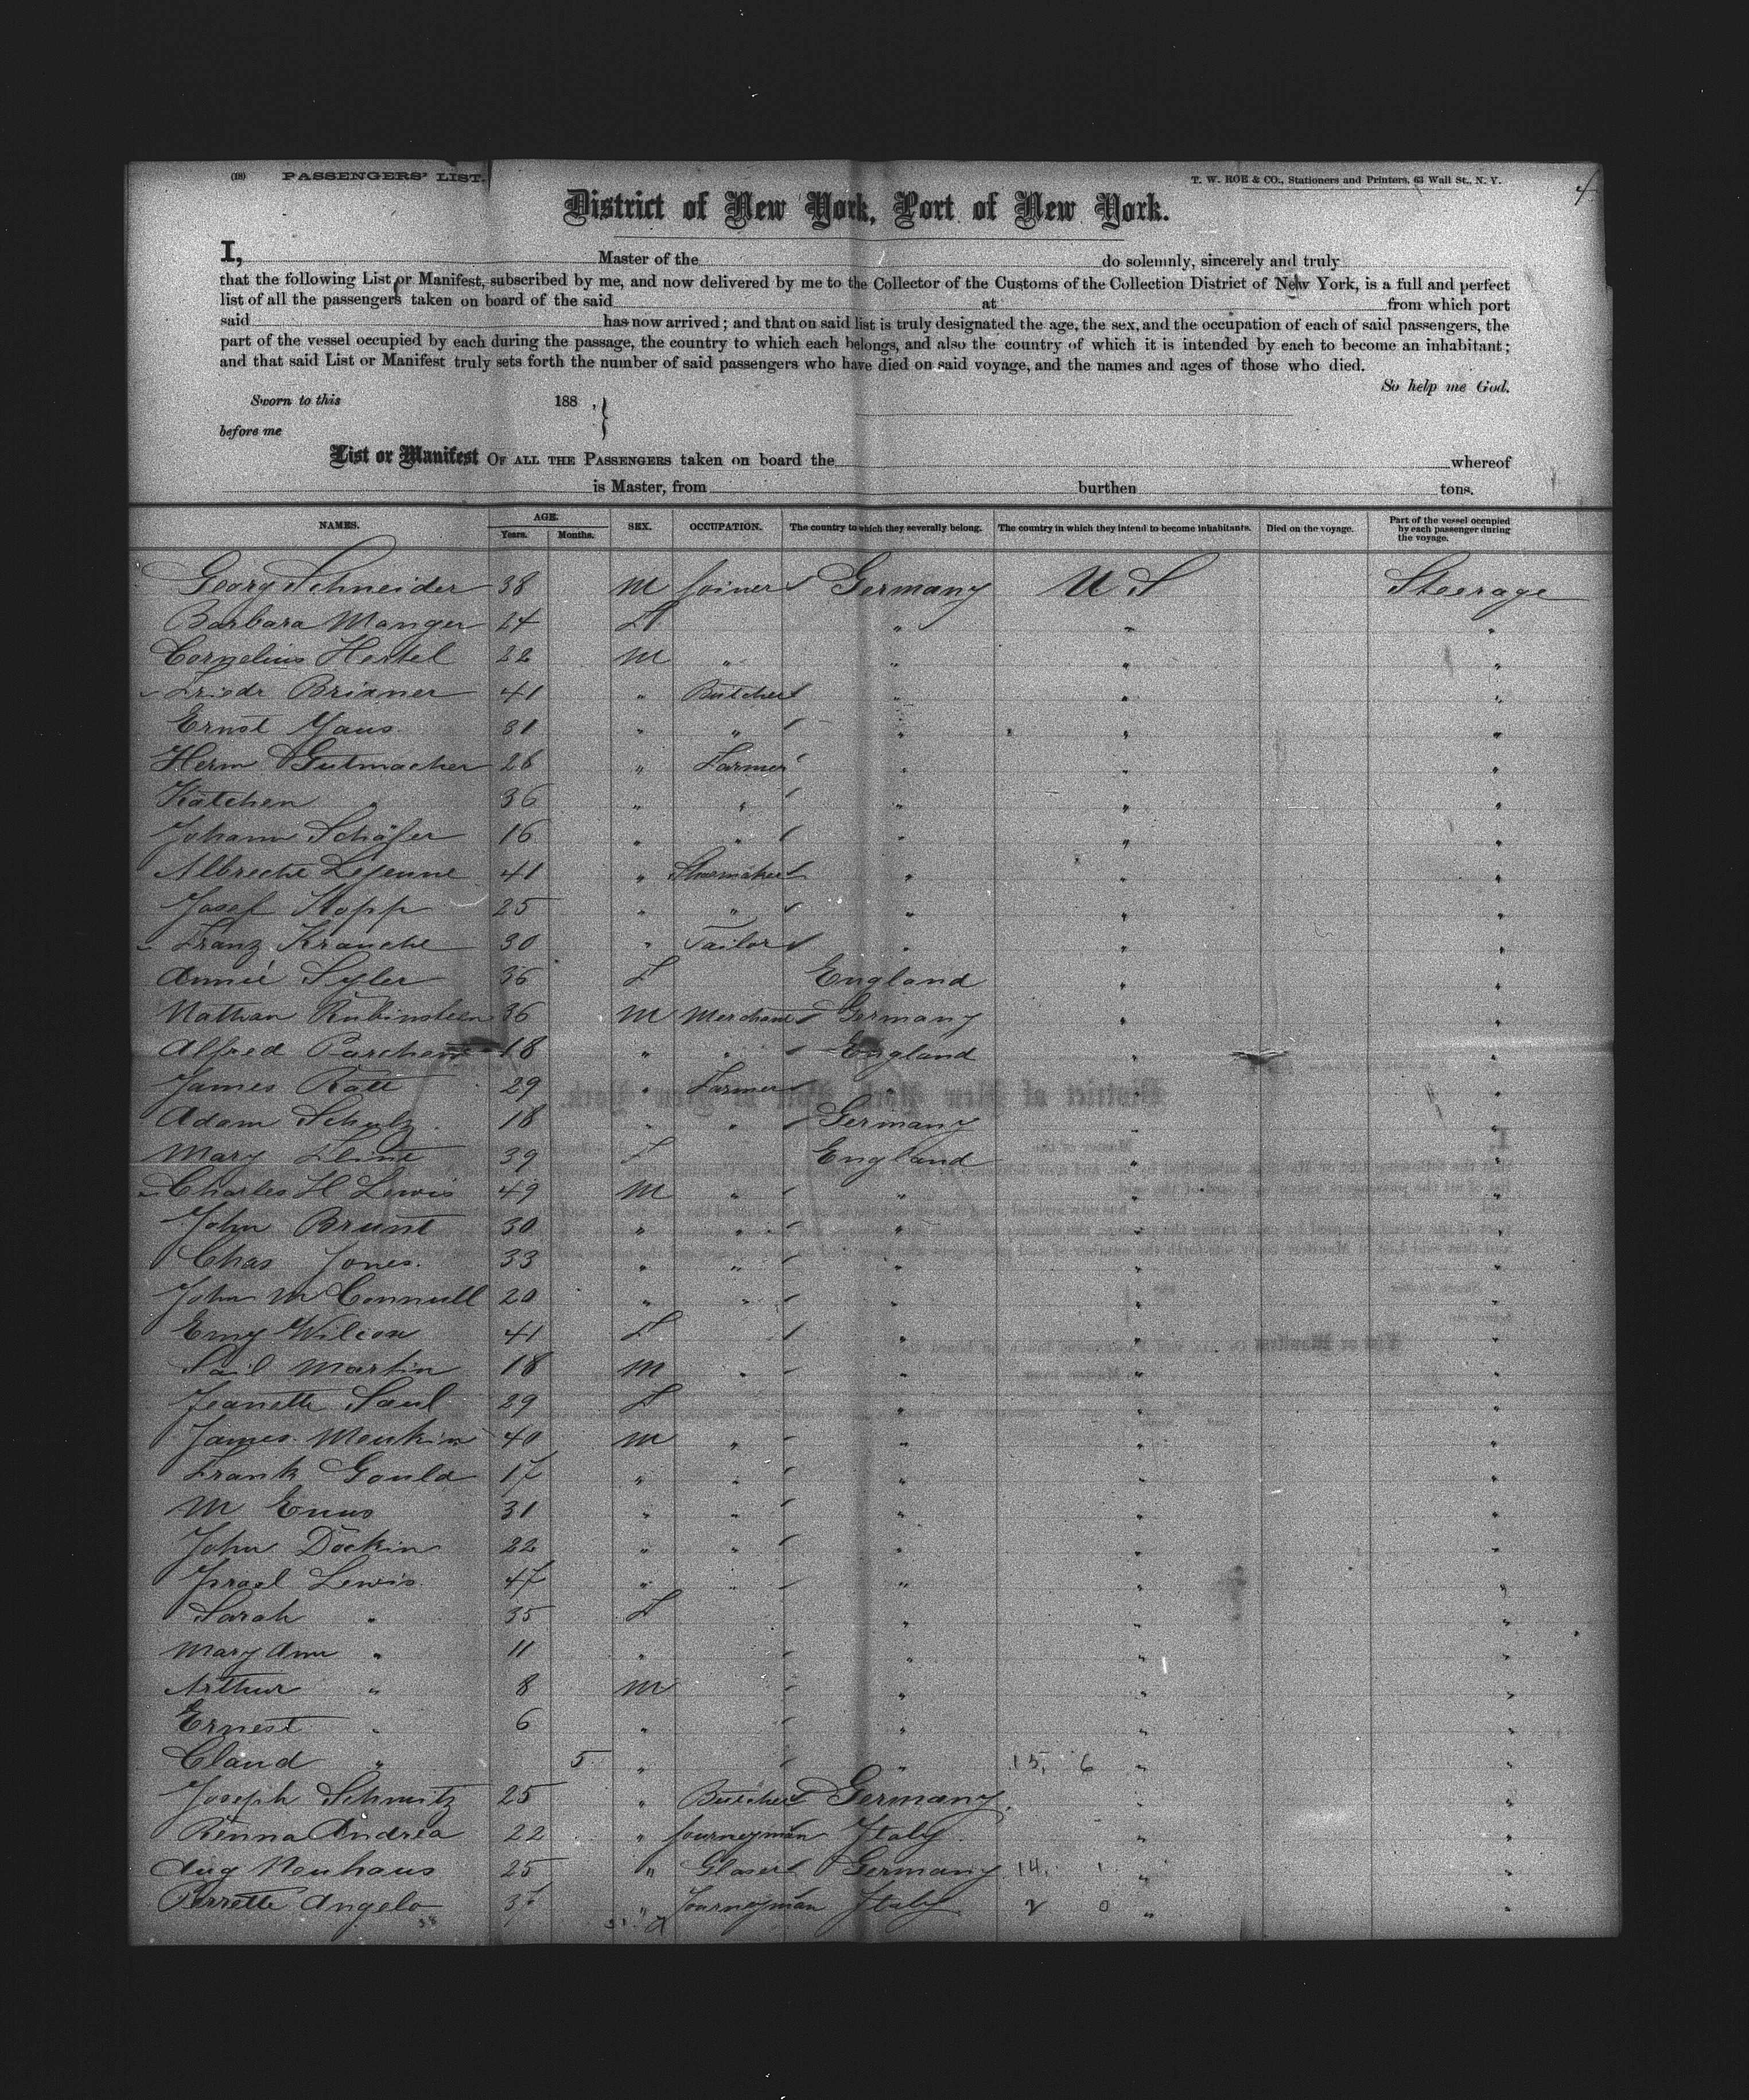 (18) PASSENGERS' LIST. T. W. ROE & CO., Stationers and Printers, 63 Wall St., N. Y. 4
District of New York, Port of New York.
I, Master of the do solemnly, sincerely and truly
that the following List or Manifest, subscribed by me, and now delivered by me to the Collector of the Customs of the Collection District of New York, is a full and perfect
list of all the passengers taken on board of the said at from which port
said has now arrived; and that on said list is truly designated the age, the sex, and the occupation of each of said passengers, the
part of the vessel occupied by each during the passage, the country to which each belongs, and also the country of which it is intended by each to become an inhabitant;
and that said List or Manifest truly sets forth the number of said passengers who have died on said voyage, and the names and ages of those who died.
So help me God.
Sworn to this 188 ,
before me
List or Manifest OF ALL THE PASSENGERS taken on board the whereof
is Master, from burthen tons.
NAMES. AGE. Years. Months. SEX. OCCUPATION. The country to which they severally belong. The country in which they intend to become inhabitants. Died on the voyage. Part of the vessel occupied by each passenger during the voyage.
Georg Schneider 38 M Joiner Germany U S Steerage
Barbara Manger 24 F " " "
Cornelius Hertel 22 M " " " "
Friedr Brixner 41 " Butcher " " "
Ernst Maus 31 " " " " "
Herm Gutmacher 26 " Farmer " " "
Katchen " 36 " " " " "
Johann Schäfer 16 " " " " "
Albrecht Lejeune 41 " Shoemaker " " "
Josef Kopp 25 " " " " "
Franz Kranche 30 " Tailor " " "
Annie Syler 36 F England " "
Nathan Rubinstein 36 M Merchant Germany " "
Alfred 18 " " England " "
James Ratt 29 " Farmer " " "
Adam Schulz 18 " " Germany " "
Mary Flint 39 F England " "
Charles H Lewis 49 M " " " "
John Brunt 30 " " " " "
Chas Jones 33 " " " " "
John McConnell 20 " " " " "
Emy Wilson 41 F " " "
Martin 18 M " " " "
Jeanette Saul 29 F " " "
James 40 M " " " "
Frank Gould 17 " " " " "
M 31 " " " " "
John Dockin 22 " " " " "
Israel Lewis 47 " " " " "
Sarah " 35 F " " "
Mary Ann " 11 " " " "
Arthur " 8 M " " "
Ernest " 6 " " " "
Claud " 5 " " 15, 6 " "
Joseph Schmitz 25 " Butcher Germany " "
Renna Andrea 22 " Journeyman Italy " "
Aug Neuhaus 25 " Glaser Germany 14, 1 " "
Perrette Angelo " Journeyman Italy 2 0 " "